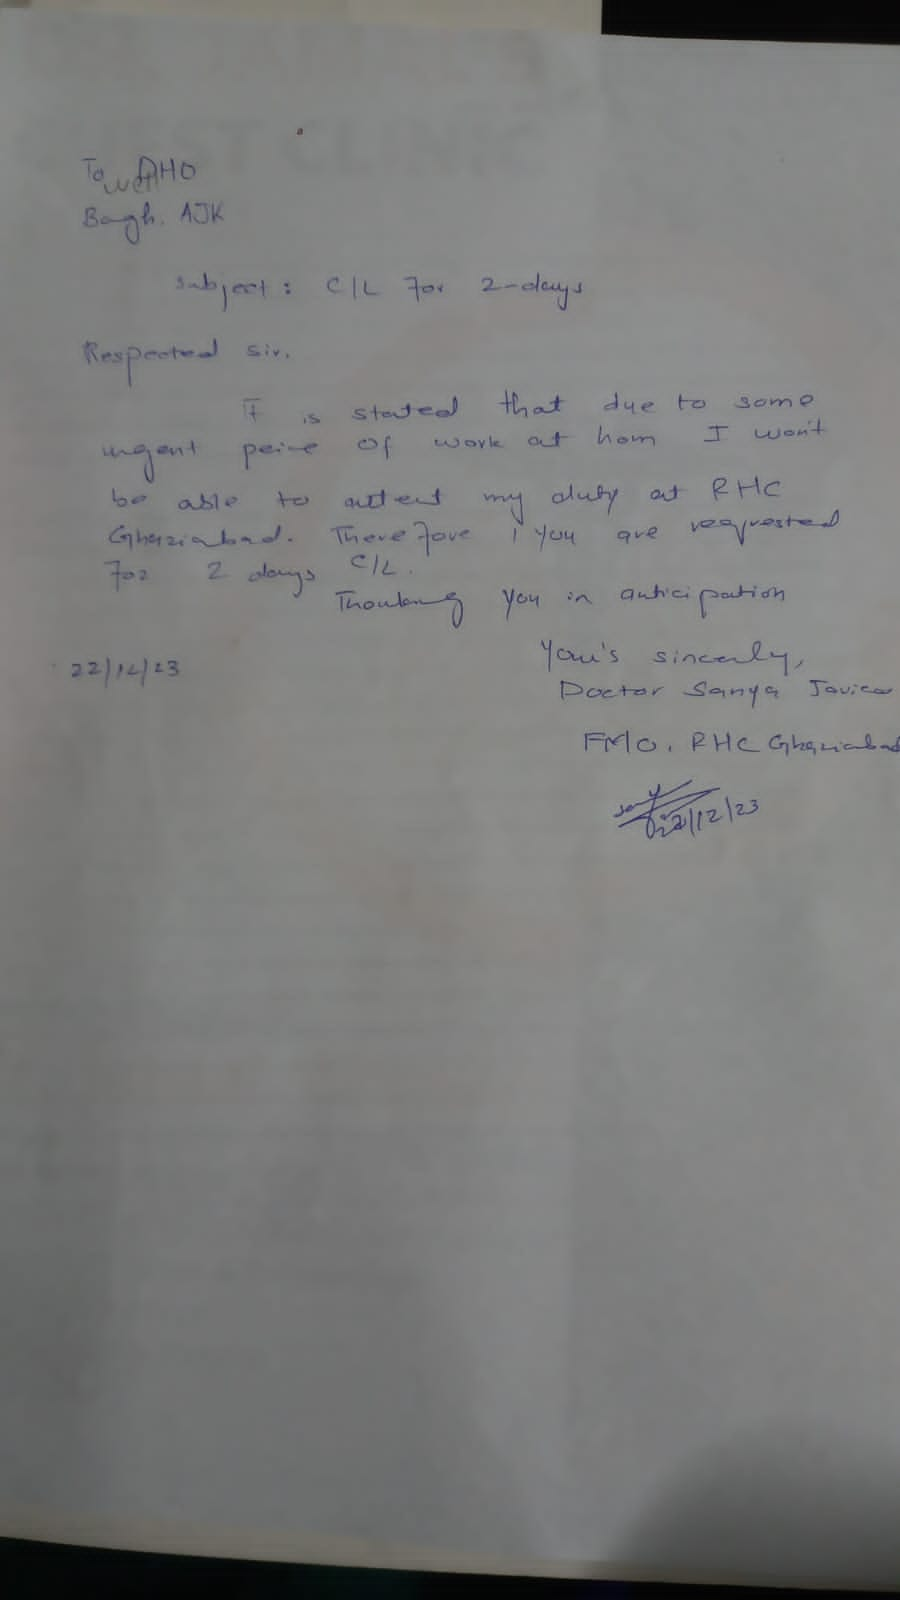 To DHO
Bagh. AJK
Subject: C/L For 2-days
Respected Sir.
It is stated that due to some
urgent peice of work at hom I won't
be able to attent my duty at RHC
Ghaziabad. Therefore, you are requested
for 2 days C/L.
Thanking you in anticipation
22/12/23
Your's sincerly,
Doctor Sanya
FMO. RHC Ghaziabad
22/12/23
CLINIC